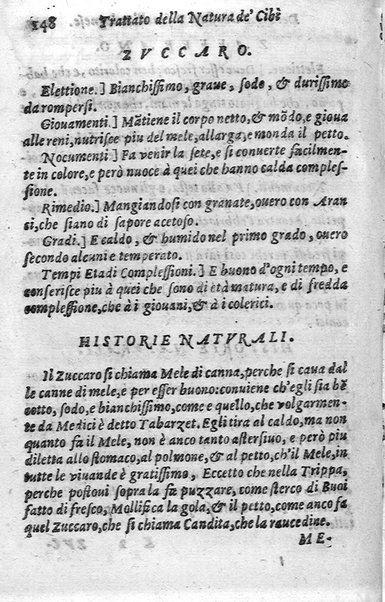 148 Trattato della Natura de' Cibi
ZVCCARO.
Elettione.] Bianchissimo, graue, sodo, & durissimo
da rompersi.
Giouamenti.] Mãtiene il corpo netto, & mõdo, e gioua
alle reni, nutrisce piu del mele, allarga, e monda il petto.
Nocumenti.] Fa venir la sete, e si conuerte facilmen-
te in colore, e però nuoce à quei che hanno calda comples-
sione.
Rimedio.] Mangiandosi con granate, ouero con Aran
ci, che siano di sapore acetoso.
Gradi.] E caldo, & humido nel primo grado, ouero
secondo alcuni e temperato.
Tempi Etadi Complessioni.] E buono d'ogni tempo, e
conferisce piu à quei che sono di età matura, e di fredda
complessione, che à i giouani, & à i colerici.
HISTORIE NATVRALI.
Il Zuccaro si chiama Mele di canna, perche si caua dal
le canne di mele, e per esser buono: conuiene ch'egli sia bẽ
cotto, sodo, e bianchissimo, come e quello, che volgarmen-
te da Medici è detto Tabarzet. Egli tira al caldo, ma non
quanto fa il Mele, non è anco tanto astersiuo, e però piu
diletta allo stomaco, al polmone, & al petto, ch'il Mele, in
tutte le viuande è gratissimo, Eccetto che nella Trippa,
perche postoui sopra la fa puzzare, come sterco di Buoi
fatto di fresco, Mollifica la gola, & il petto, come anco fa
quel Zuccaro, che si chiama Candita, che la raucedine.
ME-